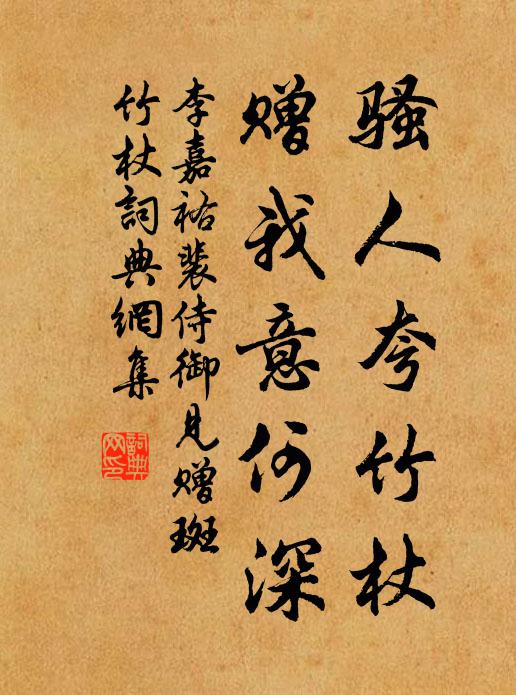 騷人夸竹杖
贈我意何深
李嘉祐裴侍御見贈斑
竹杖詞典網集
詞典
网印